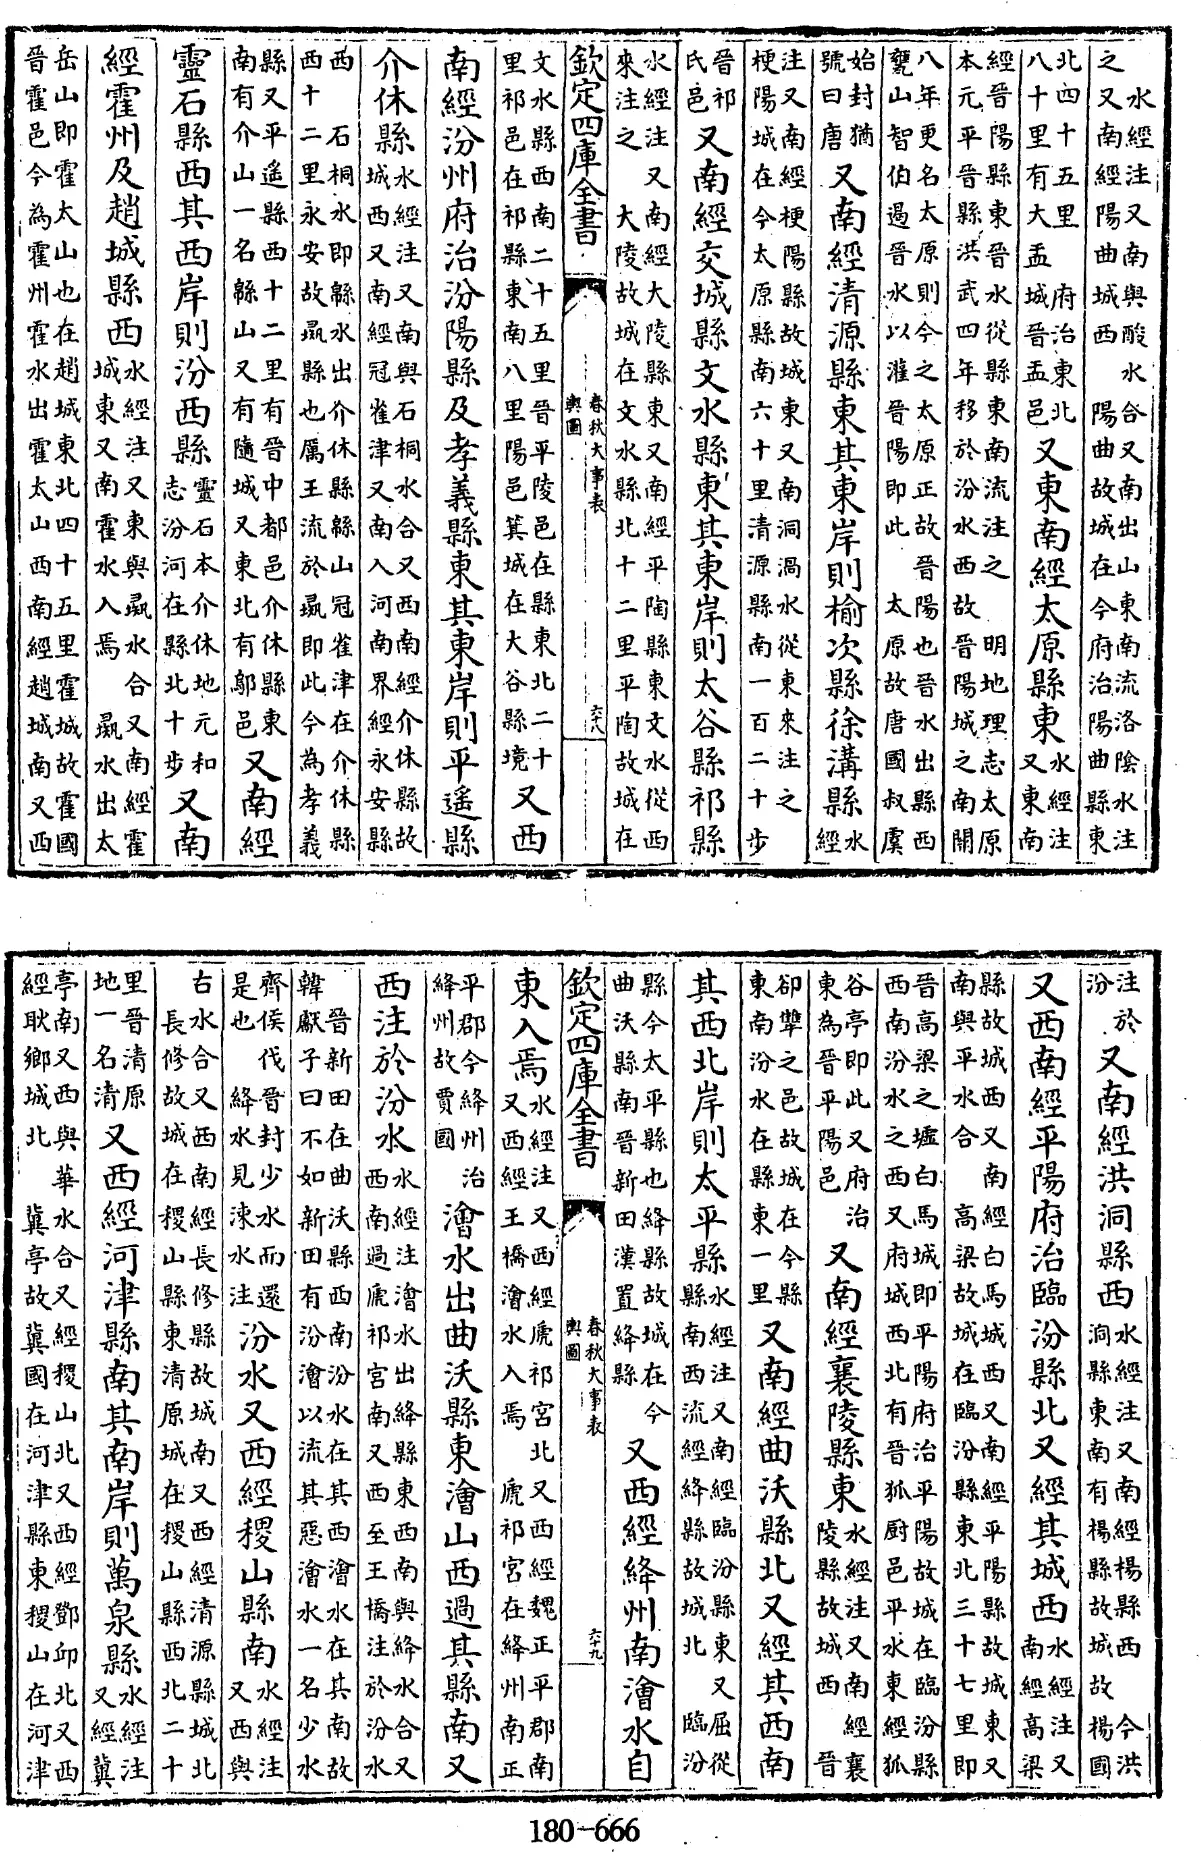 水經注又南與酸水合又南出山東南流洛陰水注之又南經陽曲城西 陽曲故城在今府治陽曲縣東
北四十五里 府治東北八十里有大盂城晉盂邑又東南經太原縣東水經注又東南
經晉陽縣東晉水從縣東南流注之 明地理志太原本元平晉縣洪武四年移於汾水西故晉陽城之南關
八年更名太原則今之太原正故晉陽也晉水出縣西甕山智伯遏晉水以灌晉陽即此 太原故唐國叔虞
始封猶號曰唐又南經清源縣東其東岸則榆次縣徐溝縣水經
注又南經梗陽縣故城東又南洞渦水從東來注之梗陽城在今太原縣南六十里清源縣南一百二十步
晉祁氏邑又南經交城縣文水縣東其東岸則太谷縣祁縣
水經注又南經大陵縣東又南經平陶縣東文水從西來注之 大陵故城在文水縣北十二里平陶故城在
欽定四庫全書 春秋大事表 輿圖 六十八
文水縣西南二十五里晉平陵邑在縣東北二十里祁邑在祁縣東南八里陽邑箕城在大谷縣境又西
南經汾州府治汾陽縣及孝義縣東其東岸則平遙縣
介休縣水經注又南與石桐水合又西南經介休縣故城西又南經冠雀津又南入河南界經永安縣
西 石桐水即緜水出介休縣緜山冠雀津在介休縣西十二里永安故彘縣也厲王流於彘即此今為孝義
縣又平遙縣西十二里有晉中都邑介休縣東南有介山一名緜山又有隨城又東北有鄔邑又南經
靈石縣西其西岸則汾西縣靈石本介休地元和志汾河在縣北十步又南
經霍州及趙城縣西水經注又東與彘水合又南經霍城東又南霍水入焉 彘水出太
岳山即霍太山也在趙城東北四十五里霍城故霍國晉霍邑今為霍州霍水出霍太山西南經趙城南又西
注於汾又南經洪洞縣西水經注又南經楊縣西 今洪洞縣東南有楊縣故城故楊國
又西南經平陽府治臨汾縣北又經其城西水經注又南經高梁
縣故城西又南經白馬城西又南經平陽縣故城東又南與平水合 高梁故城在臨汾縣東北三十七里即
晉高梁之墟白馬城即平陽府治平陽故城在臨汾縣西南汾水之西又府城西北有晉狐厨邑平水東經狐
谷亭即此又府治東為晉平陽邑又南經襄陵縣東水經注又南經襄陵縣故城西 晉
卻犨之邑故城在今縣東南汾水在縣東一里又南經曲沃縣北又經其西南
其西北岸則太平縣水經注又南經臨汾縣東又屈從縣南西流經絳縣故城北 臨汾
縣今太平縣也絳縣故城在今曲沃縣南晉新田漢置絳縣又西經絳州南澮水自
欽定四庫全書 春秋大事表 輿圖 六十九
東入焉水經注又西經虒祁宮北又西經魏正平郡南又西經王橋澮水入焉 虒祁宮在絳州南正
平郡今絳州治絳州故賈國澮水出曲沃縣東澮山西過其縣南又
西注於汾水水經注澮水出絳縣東西南與絳水合又西南過虒祁宮南又西至王橋注於汾水
晉新田在曲沃縣西南汾水在其西澮水在其南故韓獻子曰不如新田有汾澮以流其惡澮水一名少水
齊侯伐晉封少水而還是也 絳水見涑水注汾水又西經稷山縣南水經注又西與
古水合又西南經長修縣故城南又西經清源縣城北 長修故城在稷山縣東清原城在稷山縣西北二十
里晉清原地一名清又西經河津縣南其南岸則萬泉縣水經注又經冀
亭南又西與華水合又經稷山北又西經鄧邱北又西經耿鄉城北 冀亭故冀國在河津縣東稷山在河津
180-666